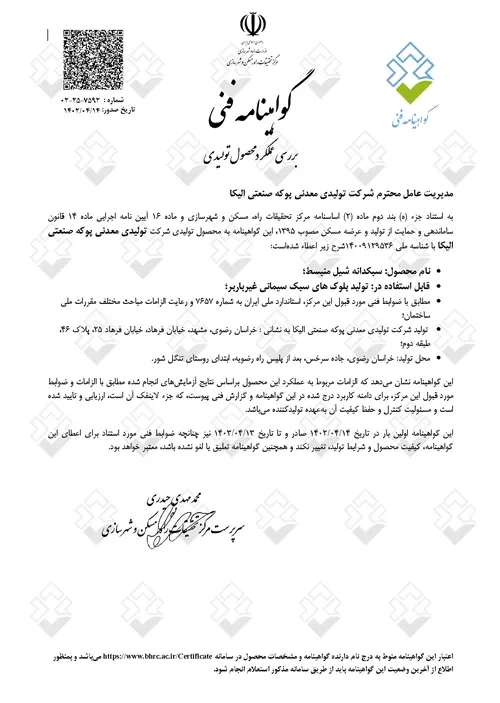 جمهوری اسلامی ایران
وزارت راه و شهرسازی
مرکز تحقیقات راه، مسکن و شهرسازی
گواهینامه فنی
گواهینامه فنی
بررسی عملکرد محصول تولیدی
شماره : ۷۵۹۲-۲۵-۰۲
تاریخ صدور: ۱۴۰۲/۰۴/۱۴
مدیریت عامل محترم شرکت تولیدی معدنی پوکه صنعتی الیکا
به استناد جزء (ه) بند دوم ماده (۲) اساسنامه مرکز تحقیقات راه، مسکن و شهرسازی و ماده ۱۶ آیین نامه اجرایی ماده ۱۴ قانون
ساماندهی و حمایت از تولید و عرضه مسکن مصوب ۱۳۹۵، این گواهینامه به محصول تولیدی شرکت تولیدی معدنی پوکه صنعتی
الیکا با شناسه ملی ۱۴۰۰۹۱۲۹۵۳۶شرح زیر اعطاء شده‌است:
• نام محصول: سبکدانه شیل منبسط؛
• قابل استفاده در: تولید بلوک های سبک سیمانی غیرباربر؛
• مطابق با ضوابط فنی مورد قبول این مرکز، استاندارد ملی ایران به شماره ۷۶۵۷ و رعایت الزامات مباحث مختلف مقررات ملی
ساختمان؛
• تولید شرکت تولیدی معدنی پوکه صنعتی الیکا به نشانی : خراسان رضوی، مشهد، خیابان فرهاد، خیابان فرهاد ۲۵، پلاک ۴۶،
طبقه دوم؛
• محل تولید: خراسان رضوی، جاده سرخس، بعد از پلیس راه رضویه، ابتدای روستای تنگل شور.
این گواهینامه نشان می‌دهد که الزامات مربوط به عملکرد این محصول براساس نتایج آزمایش‌های انجام شده مطابق با الزامات و ضوابط
مورد قبول این مرکز، برای دامنه کاربرد درج شده در این گواهینامه و گزارش فنی پیوست، که جزء لاینفک آن است، ارزیابی و تایید شده
است و مسئولیت کنترل و حفظ کیفیت آن به‌عهده تولیدکننده می‌باشد.
این گواهینامه اولین بار در تاریخ ۱۴۰۲/۰۴/۱۴ صادر و تا تاریخ ۱۴۰۳/۰۴/۱۳ نیز چنانچه ضوابط فنی مورد استناد برای اعطای این
گواهینامه، کیفیت محصول و شرایط تولید، تغییر نکند و همچنین گواهینامه تعلیق یا لغو نشده باشد، معتبر خواهد بود.
محمد مهدی حیدری
سرپرست مرکز تحقیقات راه، مسکن و شهرسازی
اعتبار این گواهینامه منوط به درج نام دارنده گواهینامه و مشخصات محصول در سامانه https://www.bhrc.ac.ir/Certificate می‌باشد و بمنظور
اطلاع از آخرین وضعیت این گواهینامه باید از طریق سامانه مذکور استعلام انجام شود.